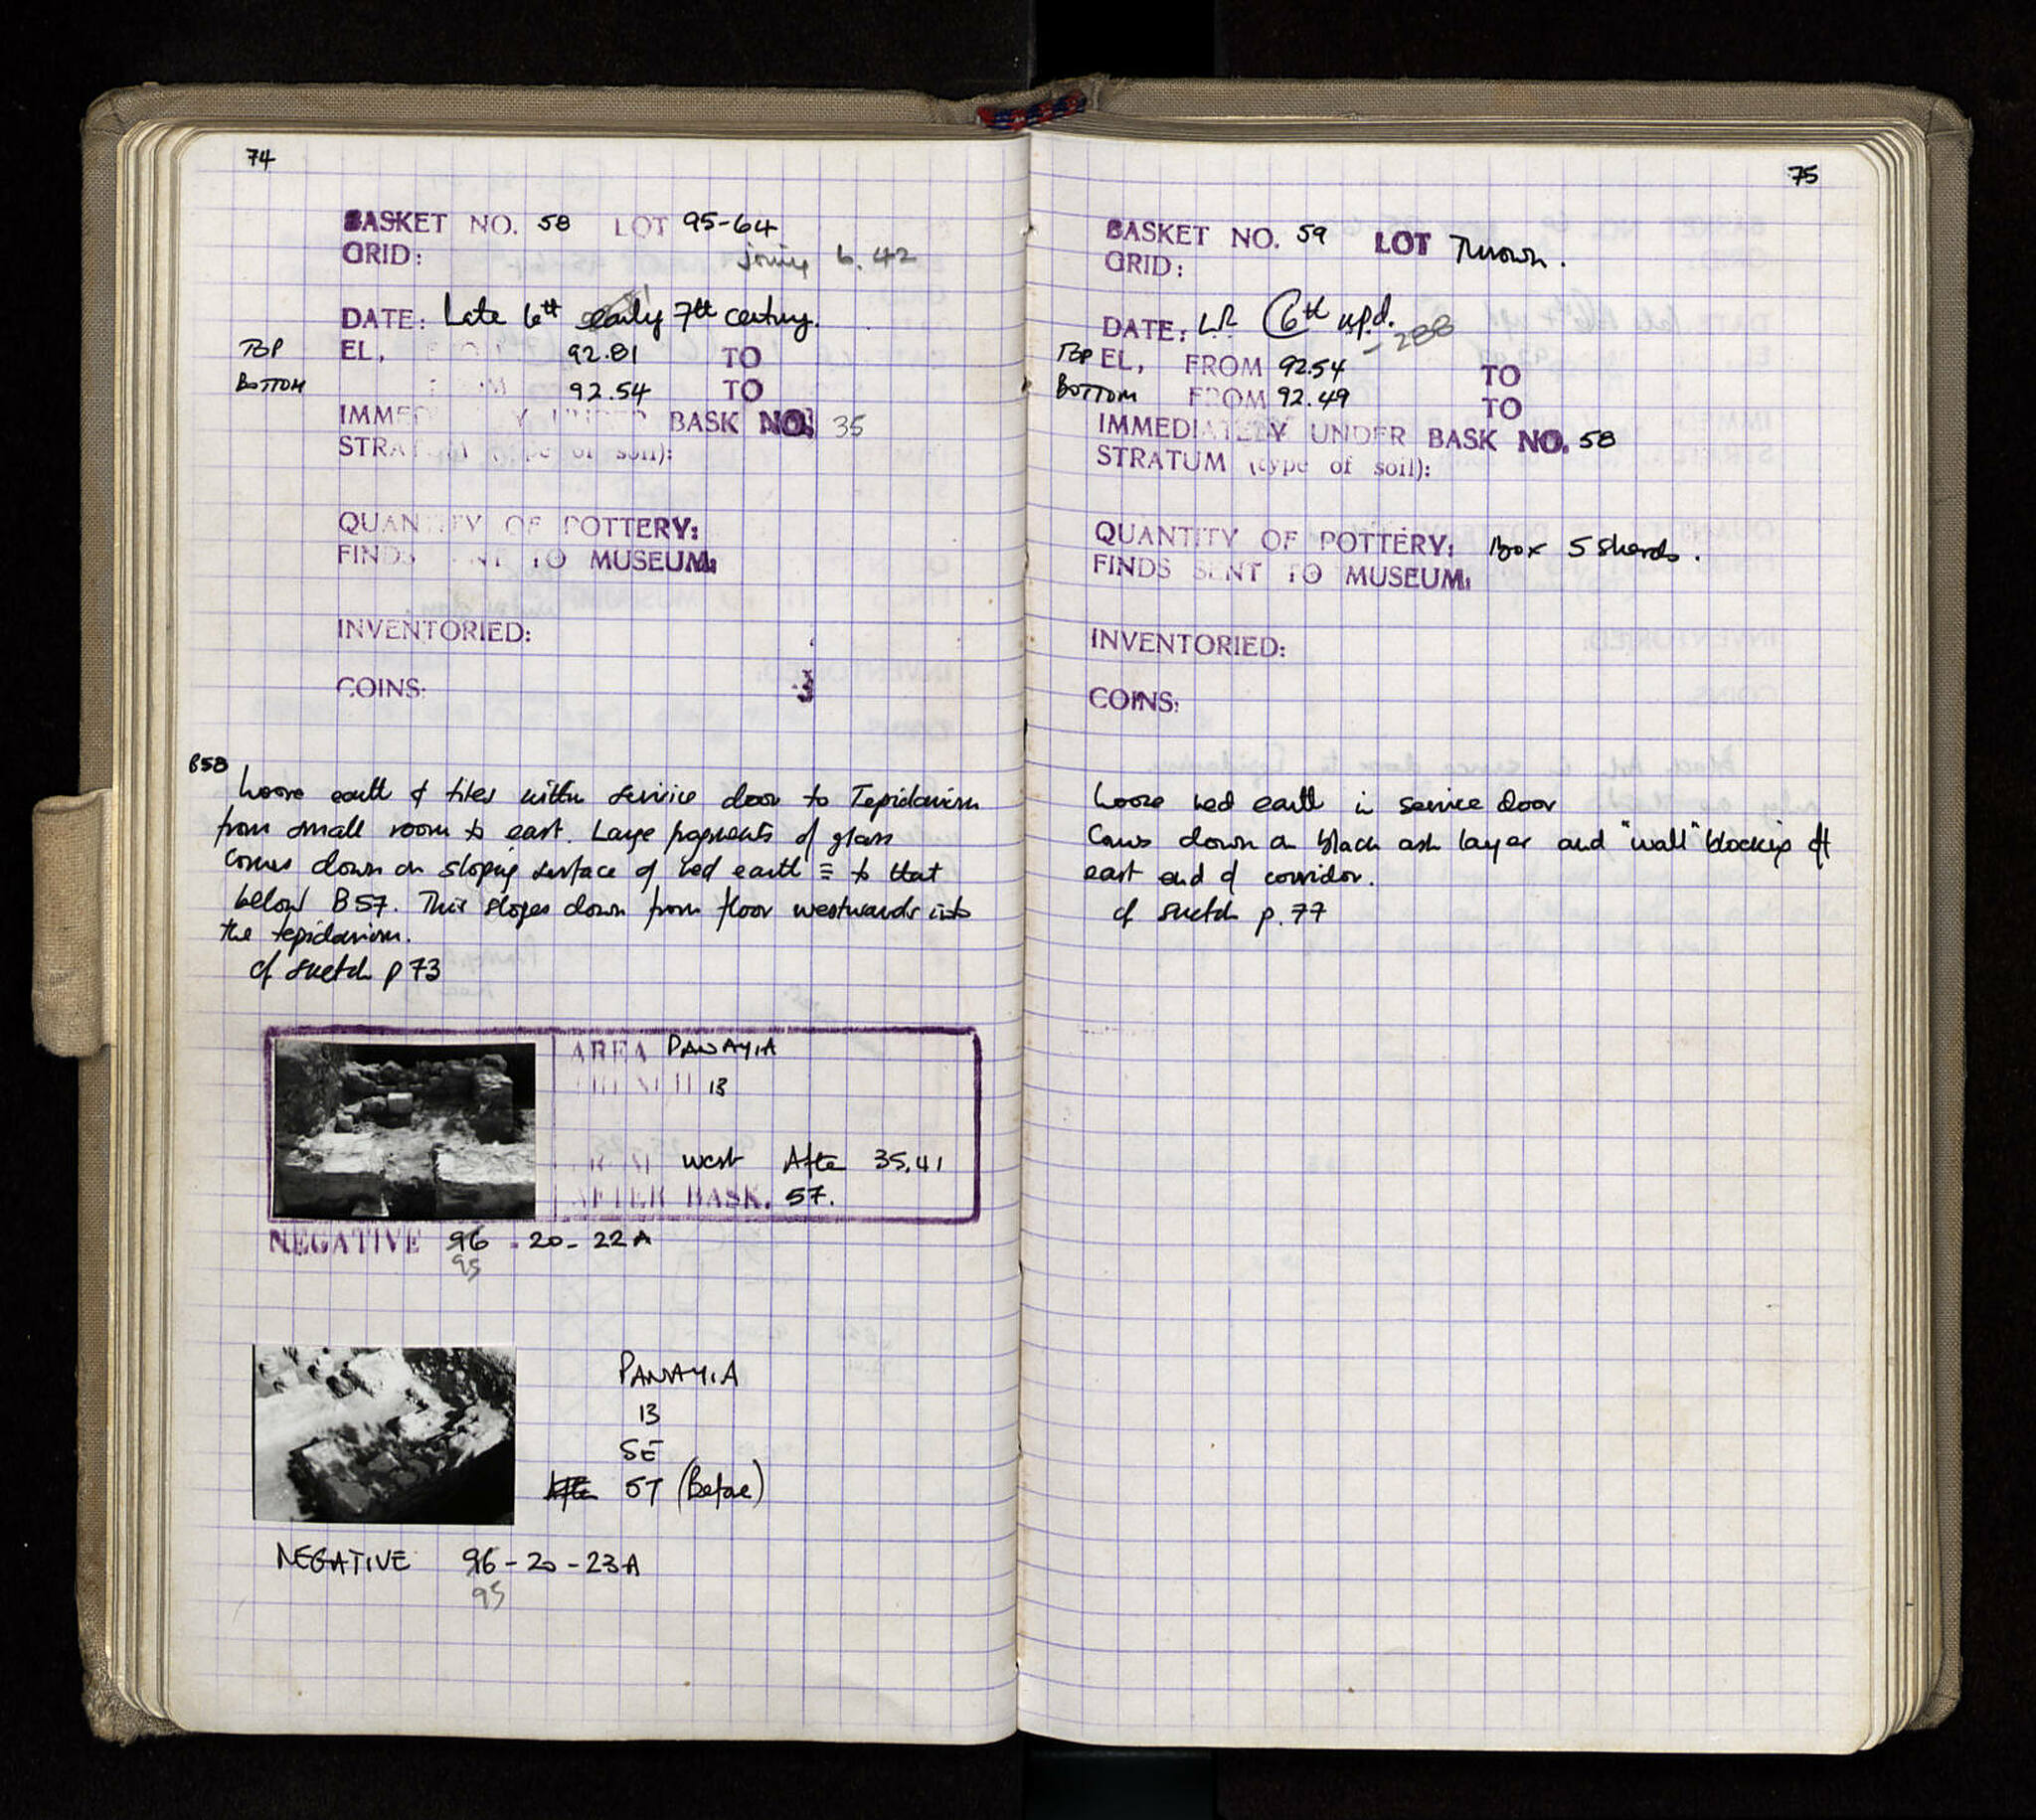 74
BASKET NO. 58 LOT 95-64
GRID: joins b. 42
DATE: Late 6th early 7th century.
TOP EL, 92.81 TO
BOTTOM 92.54 TO
IMMEDIATELY UNDER BASK NO. 35
STRATUM (type of soil):
QUANTITY OF POTTERY:
FINDS SENT TO MUSEUM:
INVENTORIED:
COINS:
B58
Loose earth & tiles within service door to Tepidarium
from small room to east. Large fragments of glass
Comes down on sloping surface of red earth ≡ to that
below B57. This slopes down from floor westwards into
the tepidarium.
cf sketch p 73
AREA PANAYIA
TRENCH 13
FROM west After 35,41
AFTER BASK. 57.
NEGATIVE 96 - 20 - 22A
95
PANAYIA
13
SE
After 57 (Before)
NEGATIVE 96 - 20 - 23A
95
75
BASKET NO. 59 LOT Thrown.
GRID:
DATE: LR (6th npd. - 288
TOP EL, FROM 92.54 TO
BOTTOM FROM 92.49 TO
IMMEDIATELY UNDER BASK NO. 58
STRATUM (type of soil):
QUANTITY OF POTTERY: Box 5 sherds.
FINDS SENT TO MUSEUM:
INVENTORIED:
COINS:
Loose red earth in service door
Comes down on black ash layer and "wall" blocking off
east end of corridor.
cf sketch p. 77